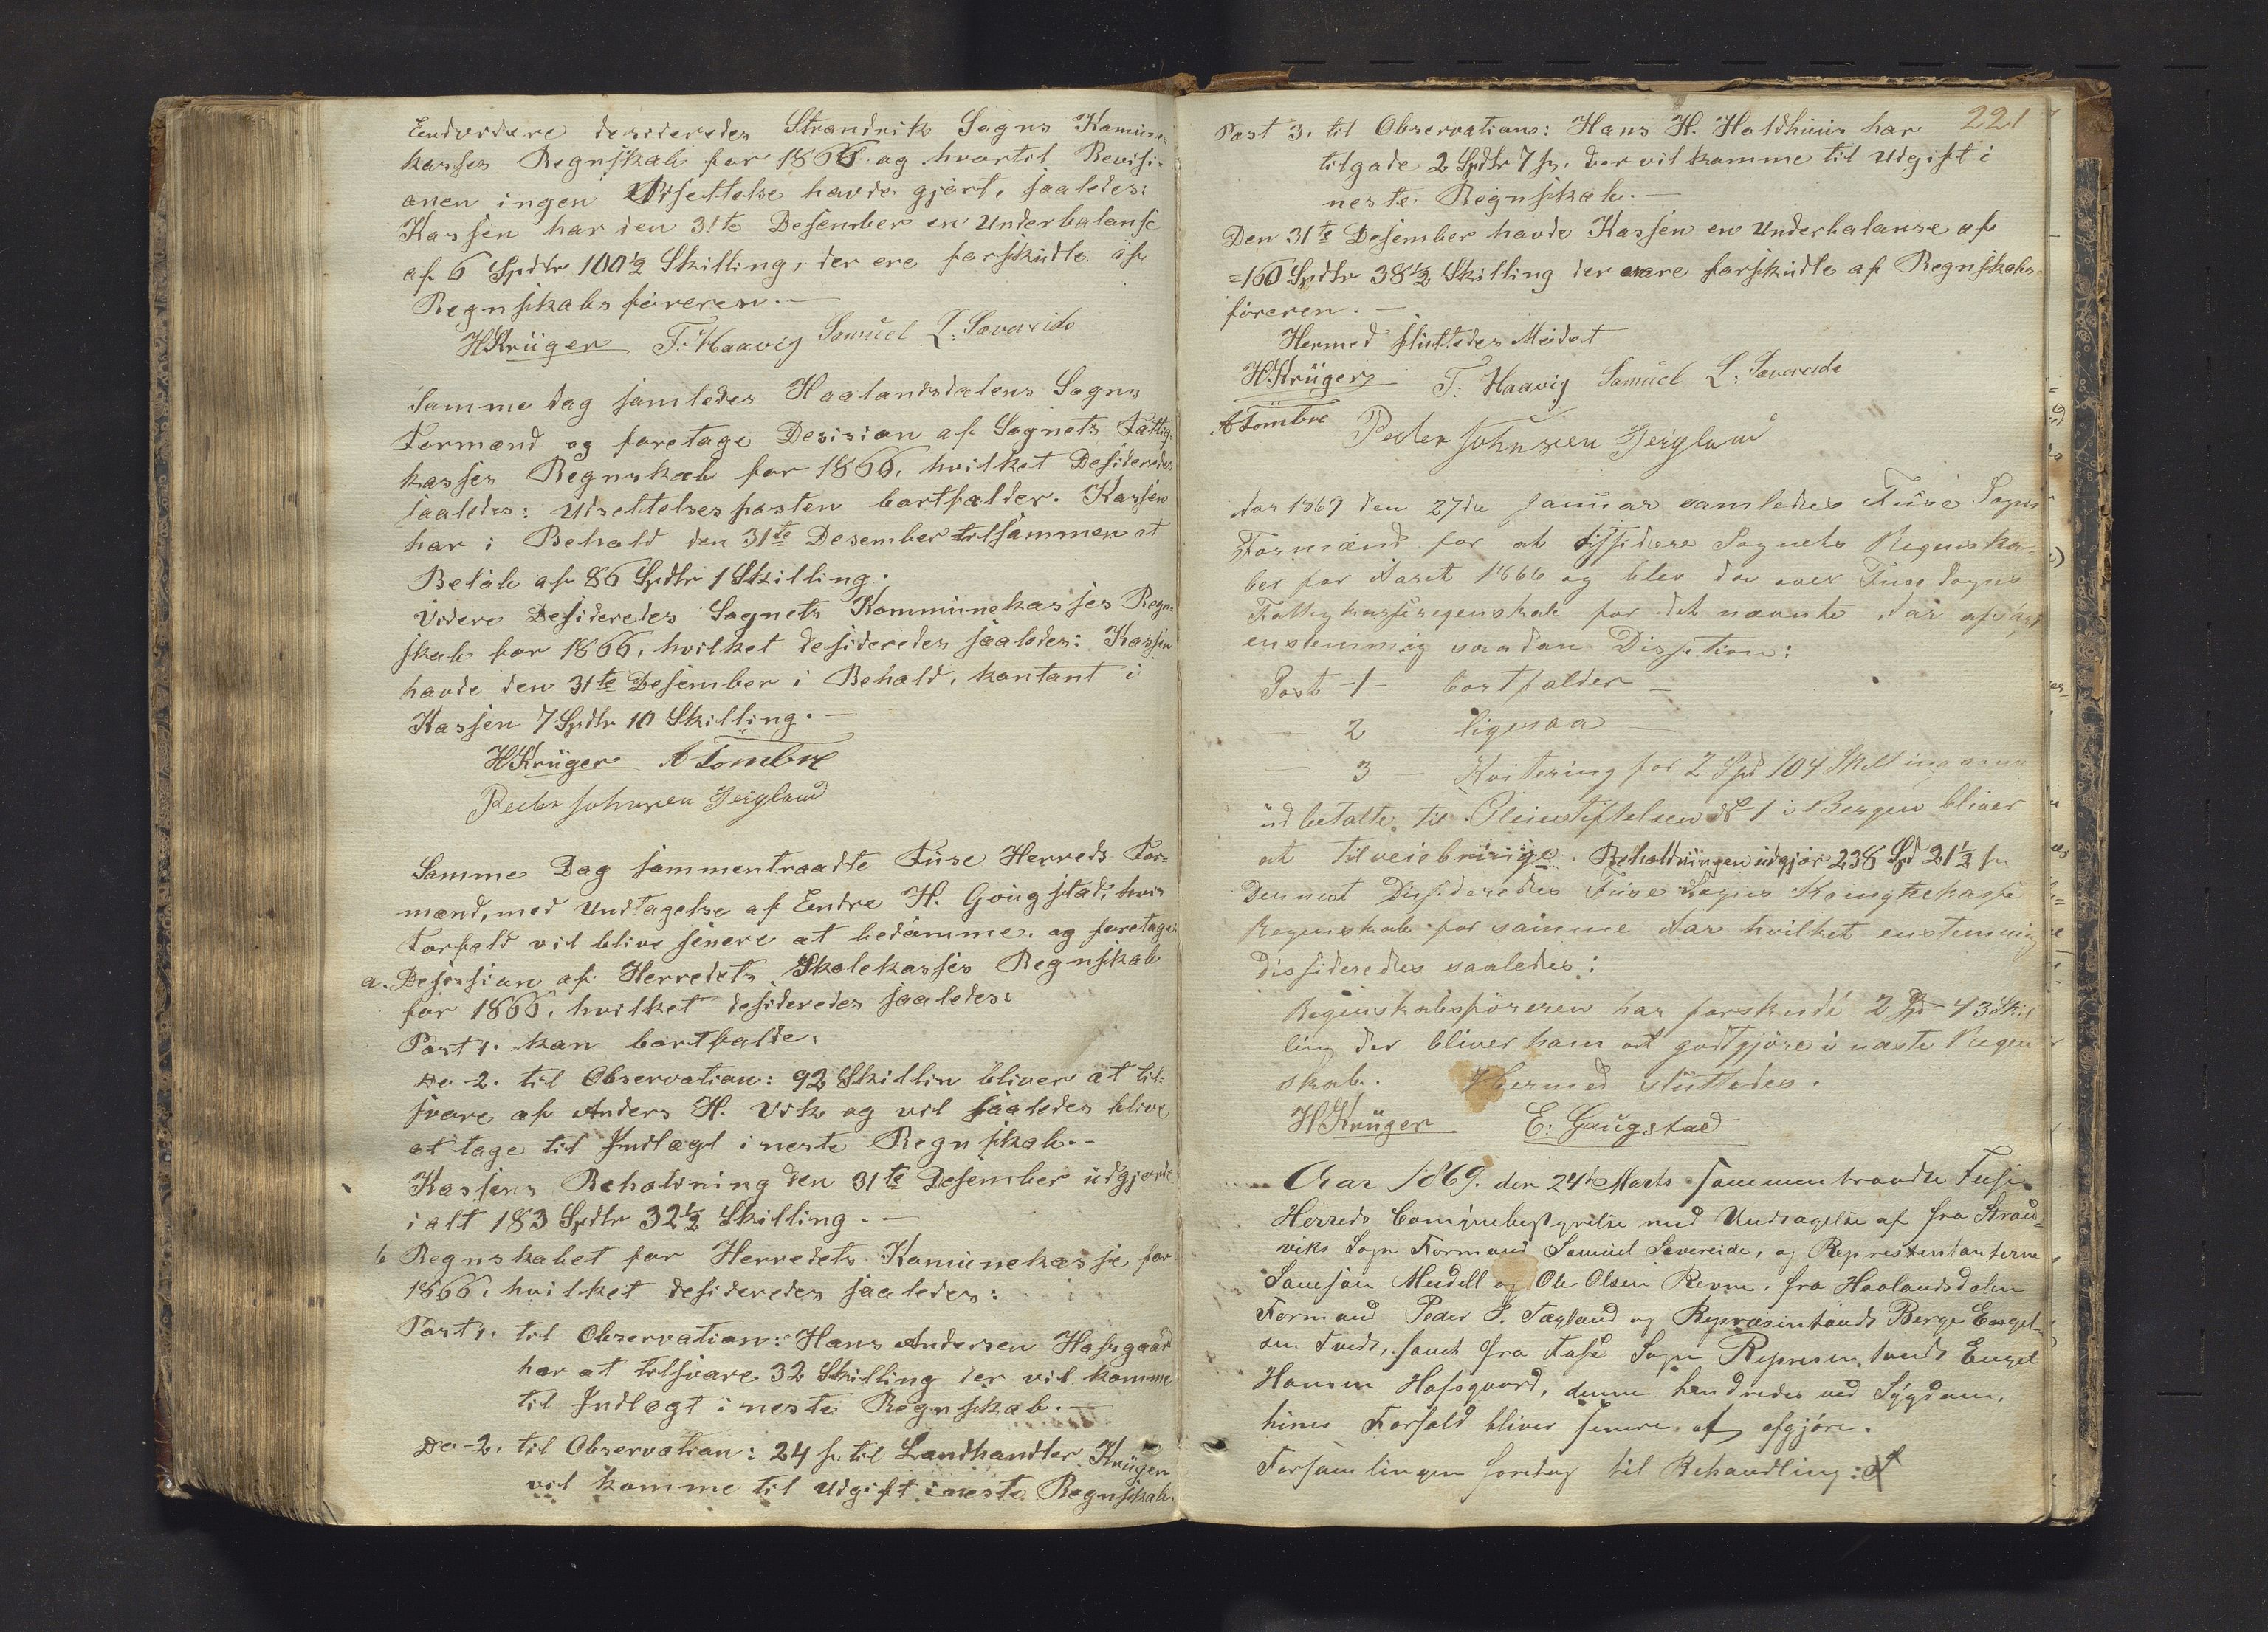 Endvidere desideredes Strandvik Sogns Komüne-
kasses Regnskab for 1866 og hvortil Revisi-
onen ingen Udsettelse havde gjørt, saaledes:
Kassen har den 31te Desember en Underbalanse
af 6 Spdlr 100½ Skilling, der ere forskudte af
Regnskabsføreren.—
HKrüger T. Haavig Samüel L: Sævereide
Samme Dag samledes Haalandsdalens Sogns
Formænd og foretage Desision af Sognets Fattig-
kasses Regnskab for 1866, hvilket Desideredes
saaledes: Udsettelsesposten bortfalder. Kassen
har i Behold den 31te Desember tilsammen et
Beløb af 86 Spdlr 1 Skilling.
Videre Desideredes Sognets Kommünekasses Regn-
skab for 1866, hvilket desideredes saaledes: Kassen
havde den 31te Desember i Behold, kontant i
Kassen 7 Spdlr 10 Skilling.—
HKrüger A Tombre
Peder Johnsen Teigland
Samme Dag sammentraadte Füse Herreds For-
mænd, med Undtagelse af Endre H. Goügstad, hvis
Forfald vil blive senere at bedømme, og foretage
a. Desission af Herredets Skolekasses Regnskab
for 1866, hvilket desideredes saaledes:
Post 1. kan bortfalde.
Do 2. til Observation: 92 Skillin bliver at til-
svare af Anders H. Vik og vil saaledes blive
at tage til Indtægt i neste Regnskab.-
Kassens Beholdning den 31te Desember üdgjorde
i alt 183 Spdlr 32½ Skilling.—
b Regnskabet for Herredets Komünekasse for
1866, hvilket desideredes saaledes:
Post 1. til Observation: Hans Andersen Hafsgaard
har at tilsvare 32 Skilling der vil komme
til Indtægt i neste Regnskab.—
Do 2. til Observation: 24 s. til Landhandler Krüger
vil komme til Udgift i neste Regnskab.
221
Post 3. til Observation: Hans H. Holdhüus har
tilgode 2 Spdlr 7 s. der vil komme til Udgift i
neste Regnskab.—
Den 31te Desember havde Kassen en Underbalanse af
=160 Spdlr 38½ Skilling der ere forskudte af Regnskabs-
føreren.—
Hermed sluttedes Mødet
H.Krüger T. Haavig Samüel L: Sævereide
A Tombre Peder Johnsen Teigland
Aar 1869 den 27de Januar samledes Füse Sogns
Formænd for at dissidere Sognets Regnska-
ber for Aaret 1866 og blev da over Fuse Sogns
Fattigkasseregenskab for det nævnte Aar af
enstemmig saadan Dissition:
Post -1- bortfalder —
— 2 ligesaa —
— 3 — Kvitering for 2 Spd 104 Skilling som
üdbetalte til Pleiestiftelsen № 1 i Bergen bliver
at tilveiebringe. Beholdningen üdgjør 238 Spd 21½ s.
Dernest Dissideredes Füse Sogns Komynekasse
Regenskab for samme Aar hvilket enstemmig
dissideredes saaledes:
Regenskabsføreren har forskudt 2 Spd 43 Skil
ling der bliver ham at godtgjøre i næste Regen
skab. Hermed slüttedes.
HKrüger E: Gaügstad
Aar 1869. den 24de Marts sammentraadte Fuse
Herreds Comynebestyrelse med Undtagelse af fra Strand-
viks Sogn Formand Samuel Sævereide, og Repræsentanterne
Samson Meidell og Ole Olsen Revne, fra Haalandsdalen
Formand Peder J. Tegland og Repræsentants Berge Engel-
sen Tveds, samt fra Fuse Sogn Represen,tands Engel
Hansen Hafsgaard, denne hindredes ved Sygdom,
hines Forfald bliver senere at afgjøre.
Forsamlingen foretog til Behandling: